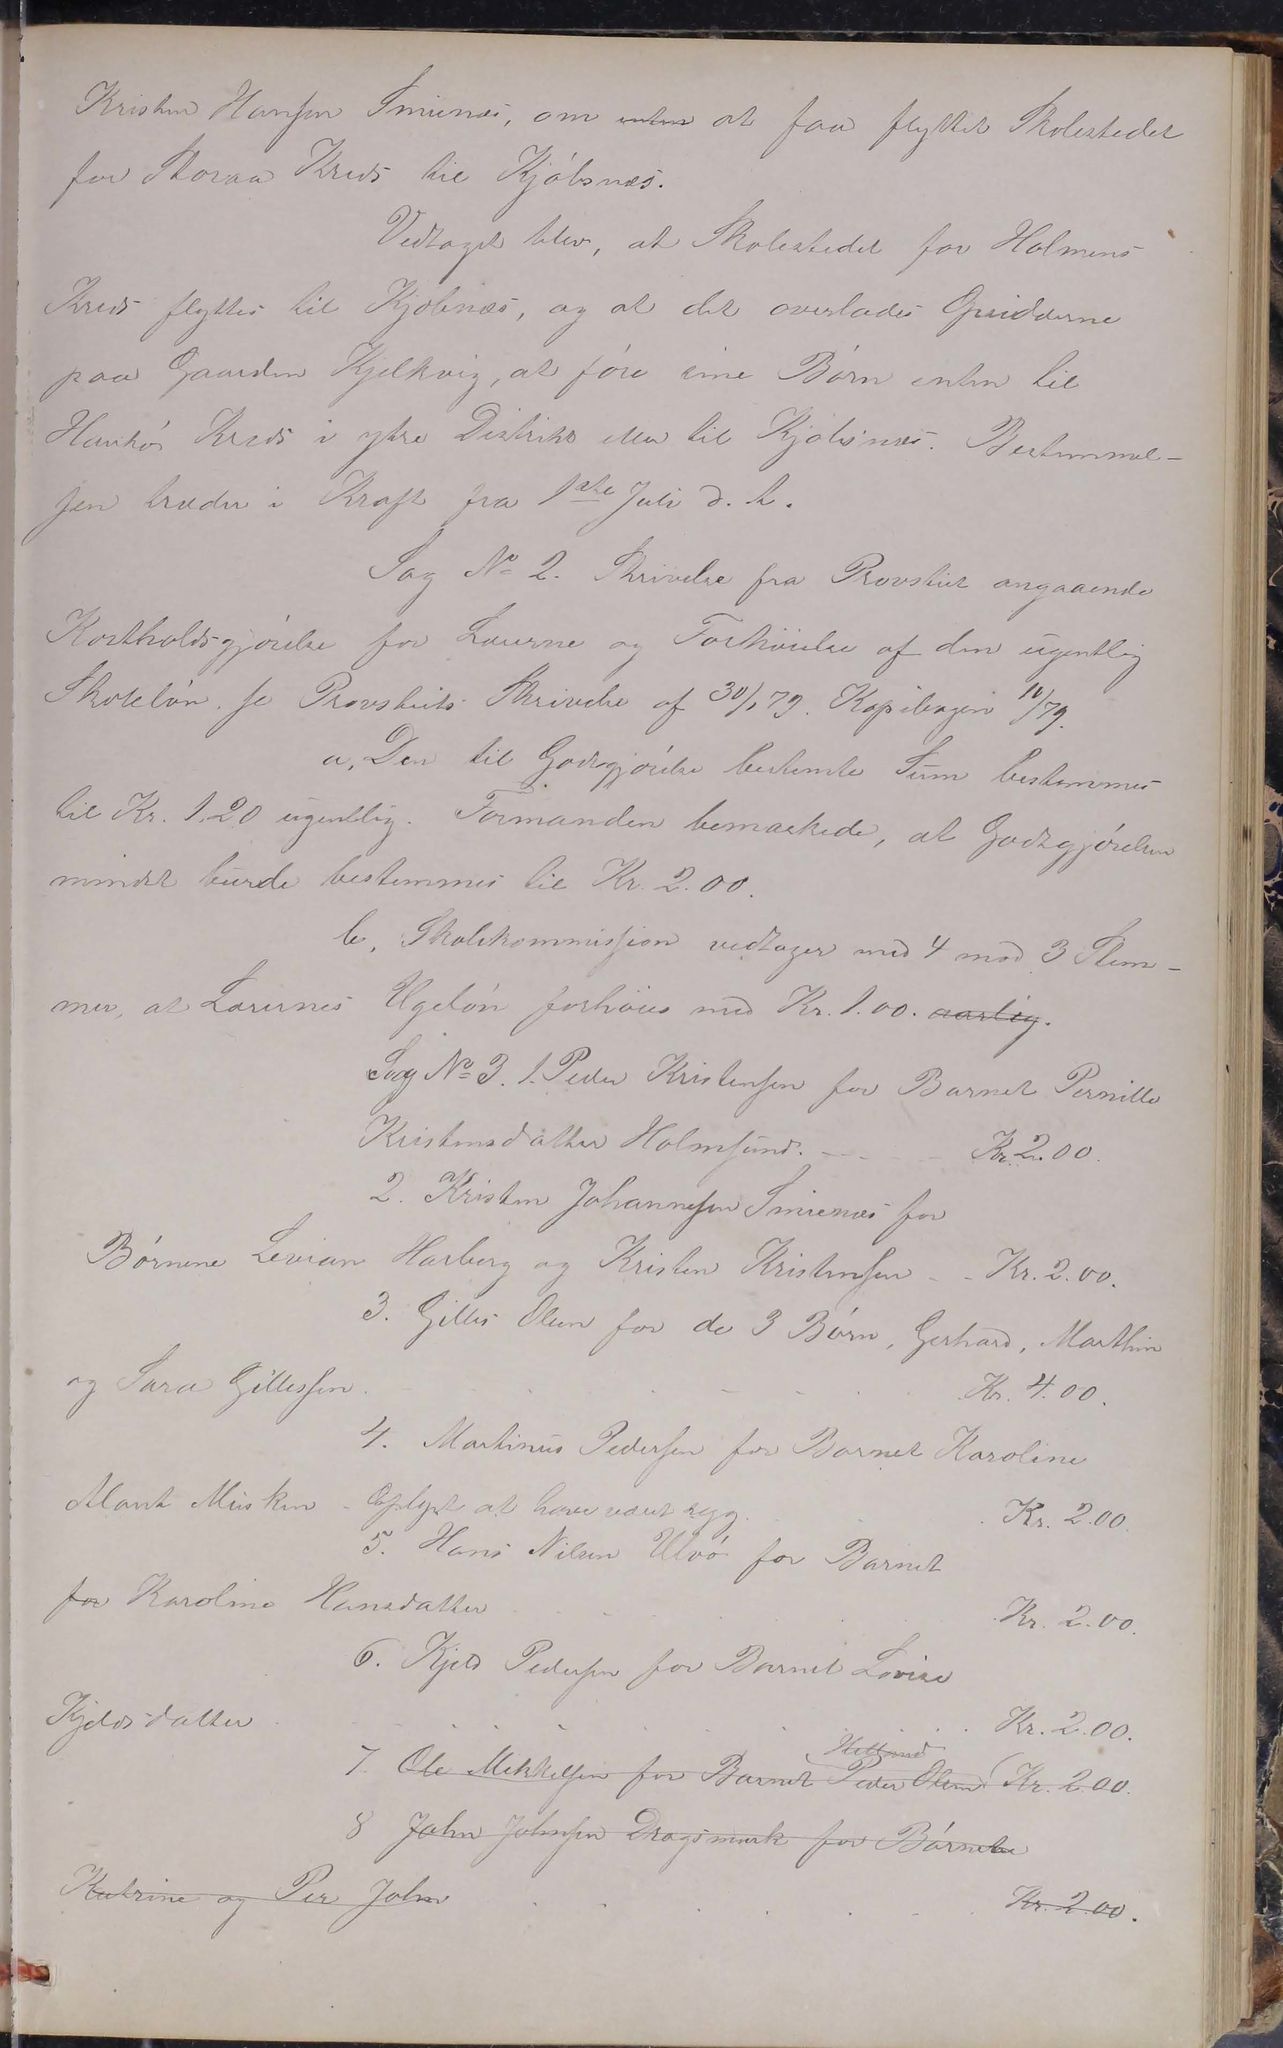 Kristen Hansen Smienæs, om enten at faa flyttet Skolestedet
for Storaa Kreds til Kjöbsnæs.
Vedtaget blev, at Skolestedet for Holmens
Kreds flyttes til Kjöbnæs, og at det overlades Opsidderne
paa Gaarden Kjelkvig, at före sine Börn enten til
Havikö Kreds i ytre Distrikt eller til Kjöbsnæs. Bestemmel-
sen træder i Kraft fra 1ste Juli d. A.
Sag No 2. Skrivelse fra Provstiet angaaende
Kostholdsgjörelse for Lærerne og Forhöielse af den ugentlig
Skolelön. se Provstiets Skrivelse af 30/1 79. Kopibogen 10/79.
a, Den til Godtgjörelse bestemte Sum bestemmes
til Kr. 1,20 ugentlig. Formanden bemærkede, at Godtgjörelsen
mindst burde bestemmes til Kr. 2.00.
b, Skolekommission vedtager med 4 mod 3 Stem-
mer, at Lærernes Ugelön forhöies med Kr. 1.00. aarlig.
Sag No 3. 1. Peder Kristensen for Barnet Pernille
Kristensdatter Holmsund. Kr. 2.00.
2. Kristen Johannesen Smienæs for
Börnene Levian Harberg og Kristen Kristensen - - Kr. 2.00.
3. Gilles Olsen for de 3 Börn, Gerhard, Marthin
og Sara Gillessen. Kr. 4.00.
4. Martinus Pedersen for Barnet Karoline
Marit Musken - Oplyst at have været syg. Kr. 2.00.
5. Hans Nilsen Ulvö for Barnet
for Karoline Hansdatter Kr. 2.00.
6. Kjeld Pedersen for Barnet Lovise
Kjeldsdatter Kr. 2.00.
Helland
7. Ole Mikkelsen for Barnet Peder Olsen Kr. 2.00.
8 John Johnsen Dragsmark for Börnene
Katrine og Per John Kr. 2.00.